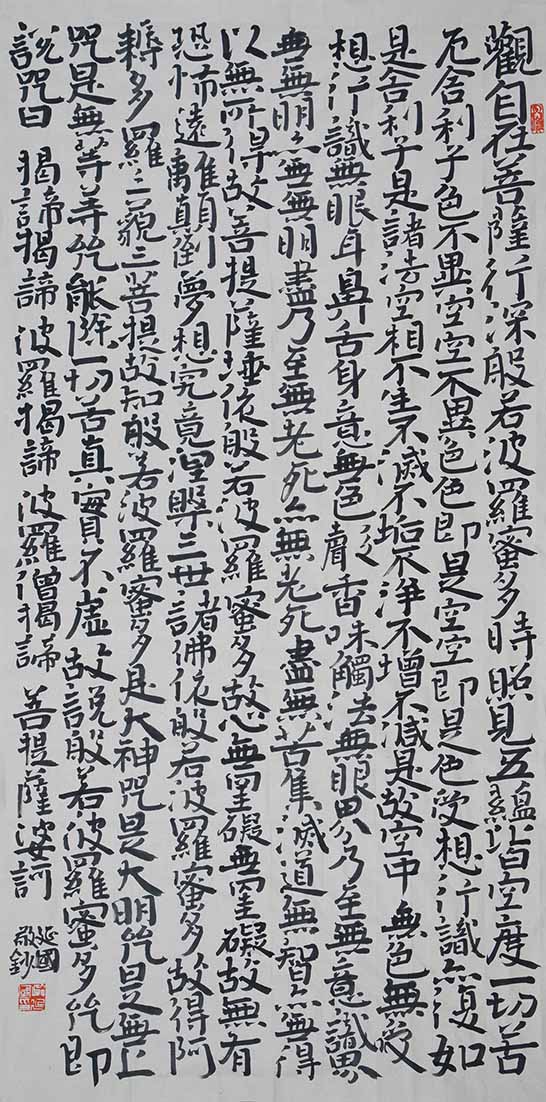 觀自在菩薩行深般若波羅蜜多時照見五蘊皆空度一切苦
厄舍利子色不異空空不異色色即是空空即是色受想行識亦復如
是舍利子是諸法空相不生不滅不垢不淨不增不減是故空中無色無受
想行識無眼耳鼻舌身意無色聲香味觸法無眼界乃至無意識界
無無明亦無無明盡乃至無老死亦無老死盡無苦集滅道無智亦無得
以無所得故菩提薩埵依般若波羅蜜多故心無罣礙無罣礙故無有
恐怖遠離顛倒夢想究竟涅槃三世諸佛依般若波羅蜜多故得阿
耨多羅三藐三菩提故知般若波羅蜜多是大神咒是大明咒是無上
咒是無等等咒能除一切苦真實不虛故說般若波羅蜜多咒即
說咒曰 揭諦揭諦 波羅揭諦 波羅僧揭諦 菩提薩婆訶
延國
敬鈔